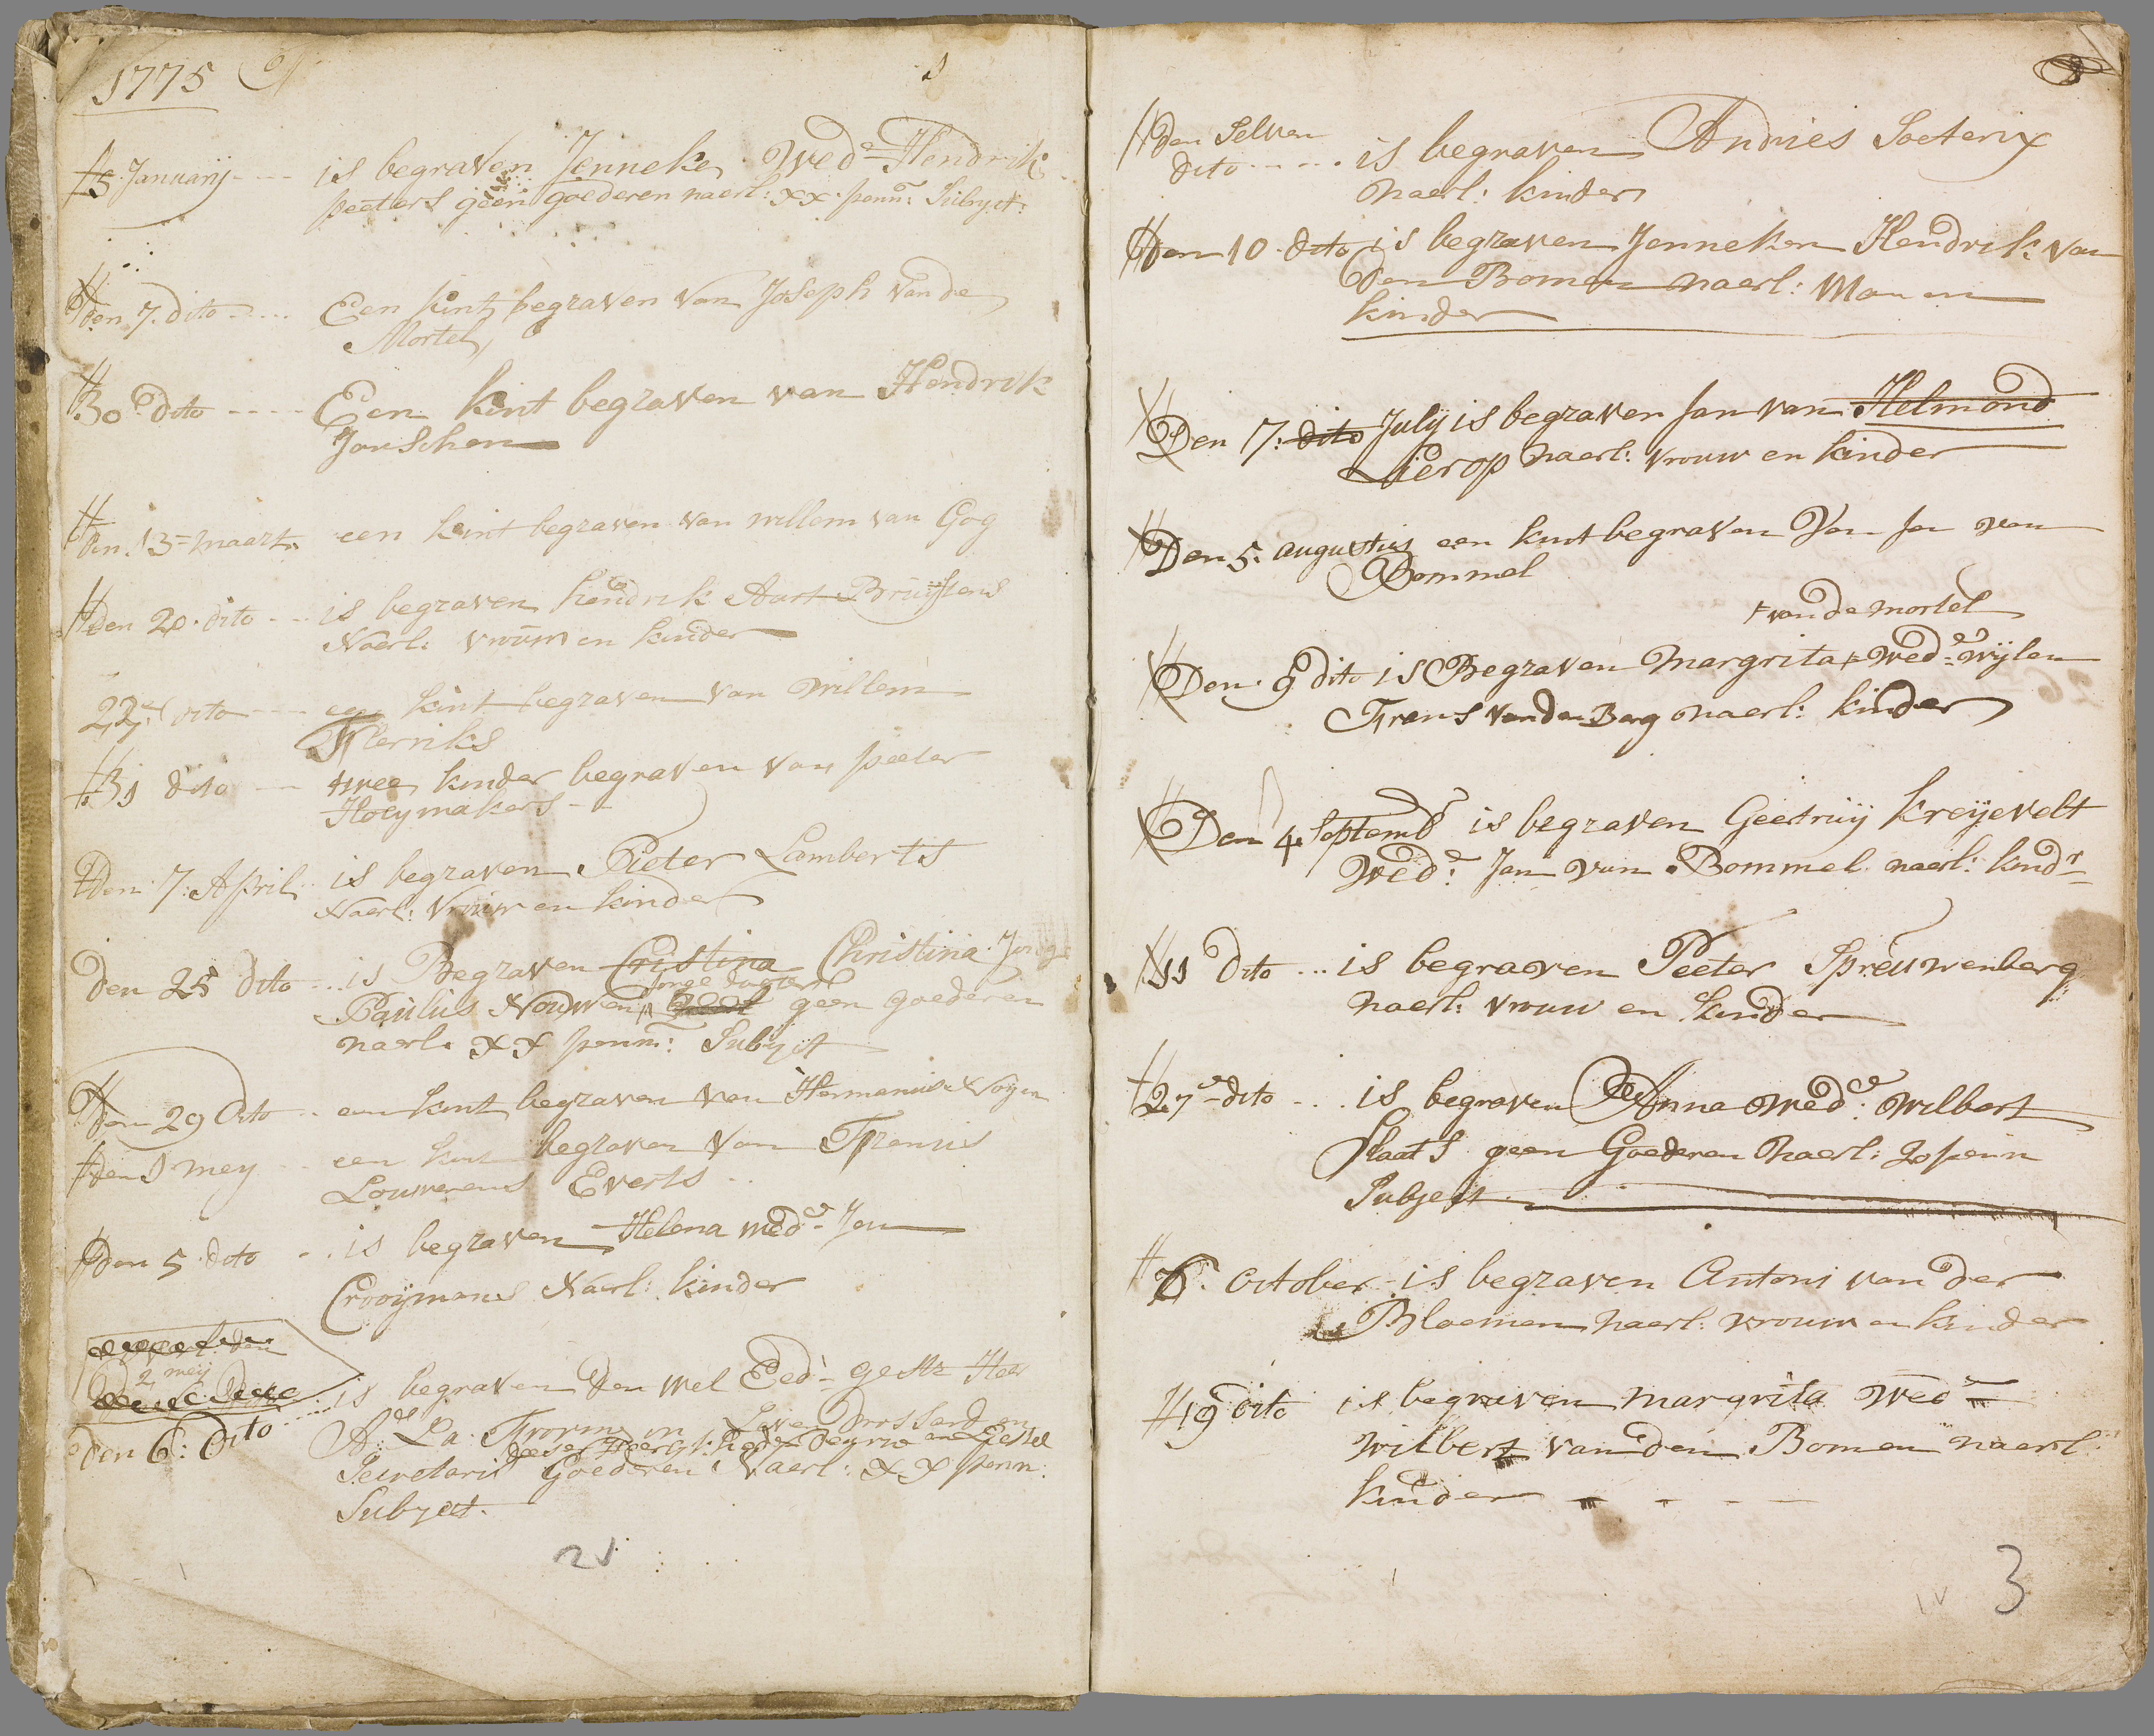 1775
1
5 Januarij ---- is begraven Jenneke Wed.e Hendrik
peeters geen goederen naerl: xx. penn: Subject:
den 7. dito ---- Een kint begraven van Joseph van de
Mortel
30.e dito ---- Een kint begraven van Hendrik
Janschen
den 13= maert een kint begraven van willem van Gog
den 20. dito --- is begraven hendrik Aart Bruijstens
Naerl: vrouw en kinder
22.e dito --- een kint begraven van Willem
31 dito --- twee kinder begraven van peeter
Hoeymakers --
den 7: April is begraven Pieter Lamberts
Naerl: Vrouw en kinder
den 25 dito ... is Begraven Cristina Christina Jonge
Jonge dogter
Paulus Nouwen geen goederen
naerl: xx penn: Subject
den 29 dito .. een kint begraven van Hermanus
den 1 mey .. een kint begraven van Francis
Louwerens Everts ..
den 5. dito .. is begraven Helena wed.e Jan
Crooijmans Naerl: kinder
2 meij
den 6: dito ..... is begraven den wel Eed: gestr Heer
A: La Drossard
deser en Gestel
Secretaris Goederen Naerl: xx penn:
Subject.
21
den Selven
dito ----- is begraven Andries Soeterix
naerl: kinder
den 10. dito is begraven Jenneken Hendrik van
den Bomen naerl: Man en
kinder
Den 17: dito Julij is begraven Jan van Helmond
Lierop naerl: vrouw en kinder
Den 5. augustus een kint begraven Van Jan van
Bommel
+ van de mortel
Den 9 dito is Begraven Margrita + Wed.e wijlen
Frans van den Berg naerl: kinder
Den 4. Septemb.r is begraven Geertruij Kreijevelt
Wed.e Jan van Bommel naerl: kind.r
11 Dito ... is begraven Peeter Spreuwenberg
naerl: vrouw en kinder
27.e dito ... is begraven Anna Wed.e Wilbert
Slaats geen Goederen Naerl: 20 penn
Subject
6. October is begraven Antoni van der
Bloemen naerl: vrouw en kinder
19 dito is begraven margrita Wed.e
Wilbert van den Bomen naerl:
kinder - - - -
3